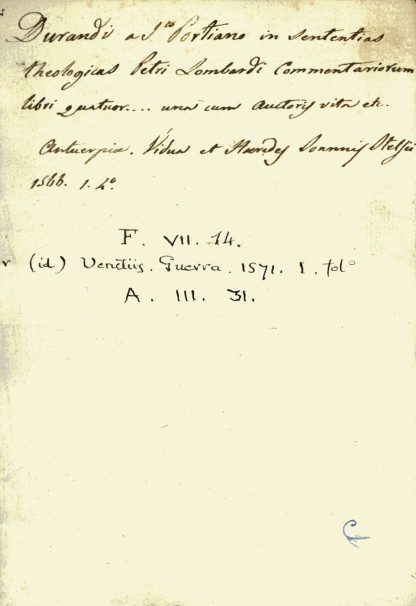 Durandi a S.to Portiano in sententias
theologicas Petri Lombardi Commentariorum
libri quatuor.... una cum Auctoris vita etc.
Antuerpiæ. Vidua et Haeredes Joannis Stelsii
1566. 1. 4.°
F. VII. 14.
(id) Venetiis. Guerra. 1571. 1. fol°
A. III. 31.